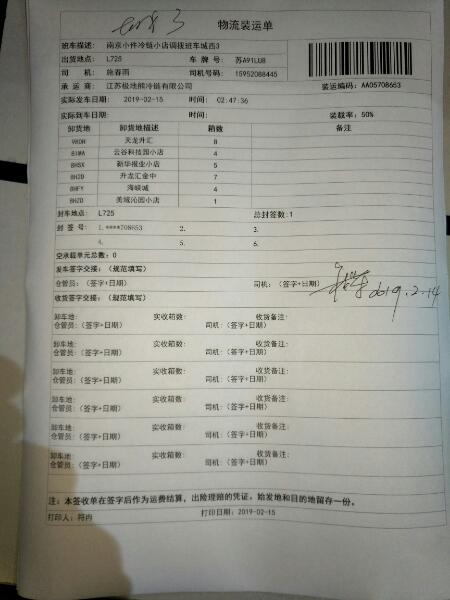 物流装运单
班车描述: 南京小件冷链小店调拨班车城西3
出货地点: L725 车 牌 号: 苏A91LU8
司 机: 施春雨 司机号码: 15952088445
承 运 商: 江苏极地熊冷链有限公司 装运编码: AA05708653
实际发车日期: 2019-02-15 时间: 02:47:36
实际到车日期: 时间: 装载率: 50%
卸货地 卸货地描述 箱数 备注
天龙升汇 8
BIMA 云谷科技园小店 4
BHSX 新华报业小店 5
升龙汇金中 7
BHFY 海峡城 4
BHZD 美域沁园小店 1
封车地点: L725 总封签数:1
封 签 号: 1.****708653 2. 3.
4. 5. 6.
空承载单元总数: 0
发车签字交接:（规范填写）
仓管员:（签字+日期） 司机:（签字+日期） 2019.2.14
收货签字交接:（规范填写）
卸车地: 实收箱数: 收货备注:
仓管员:（签字+日期） 司机:（签字+日期）
卸车地: 实收箱数: 收货备注:
仓管员:（签字+日期） 司机:（签字+日期）
卸车地: 实收箱数: 收货备注:
仓管员:（签字+日期） 司机:（签字+日期）
卸车地: 实收箱数: 收货备注:
仓管员:（签字+日期） 司机:（签字+日期）
卸车地: 实收箱数: 收货备注:
仓管员:（签字+日期） 司机:（签字+日期）
卸车地: 实收箱数: 收货备注:
仓管员:（签字+日期） 司机:（签字+日期）
注: 本签收单在签字后作为运费结算，出险理赔的凭证。始发地和目的地留存一份。
打印人: 符冉 打印日期: 2019-02-15